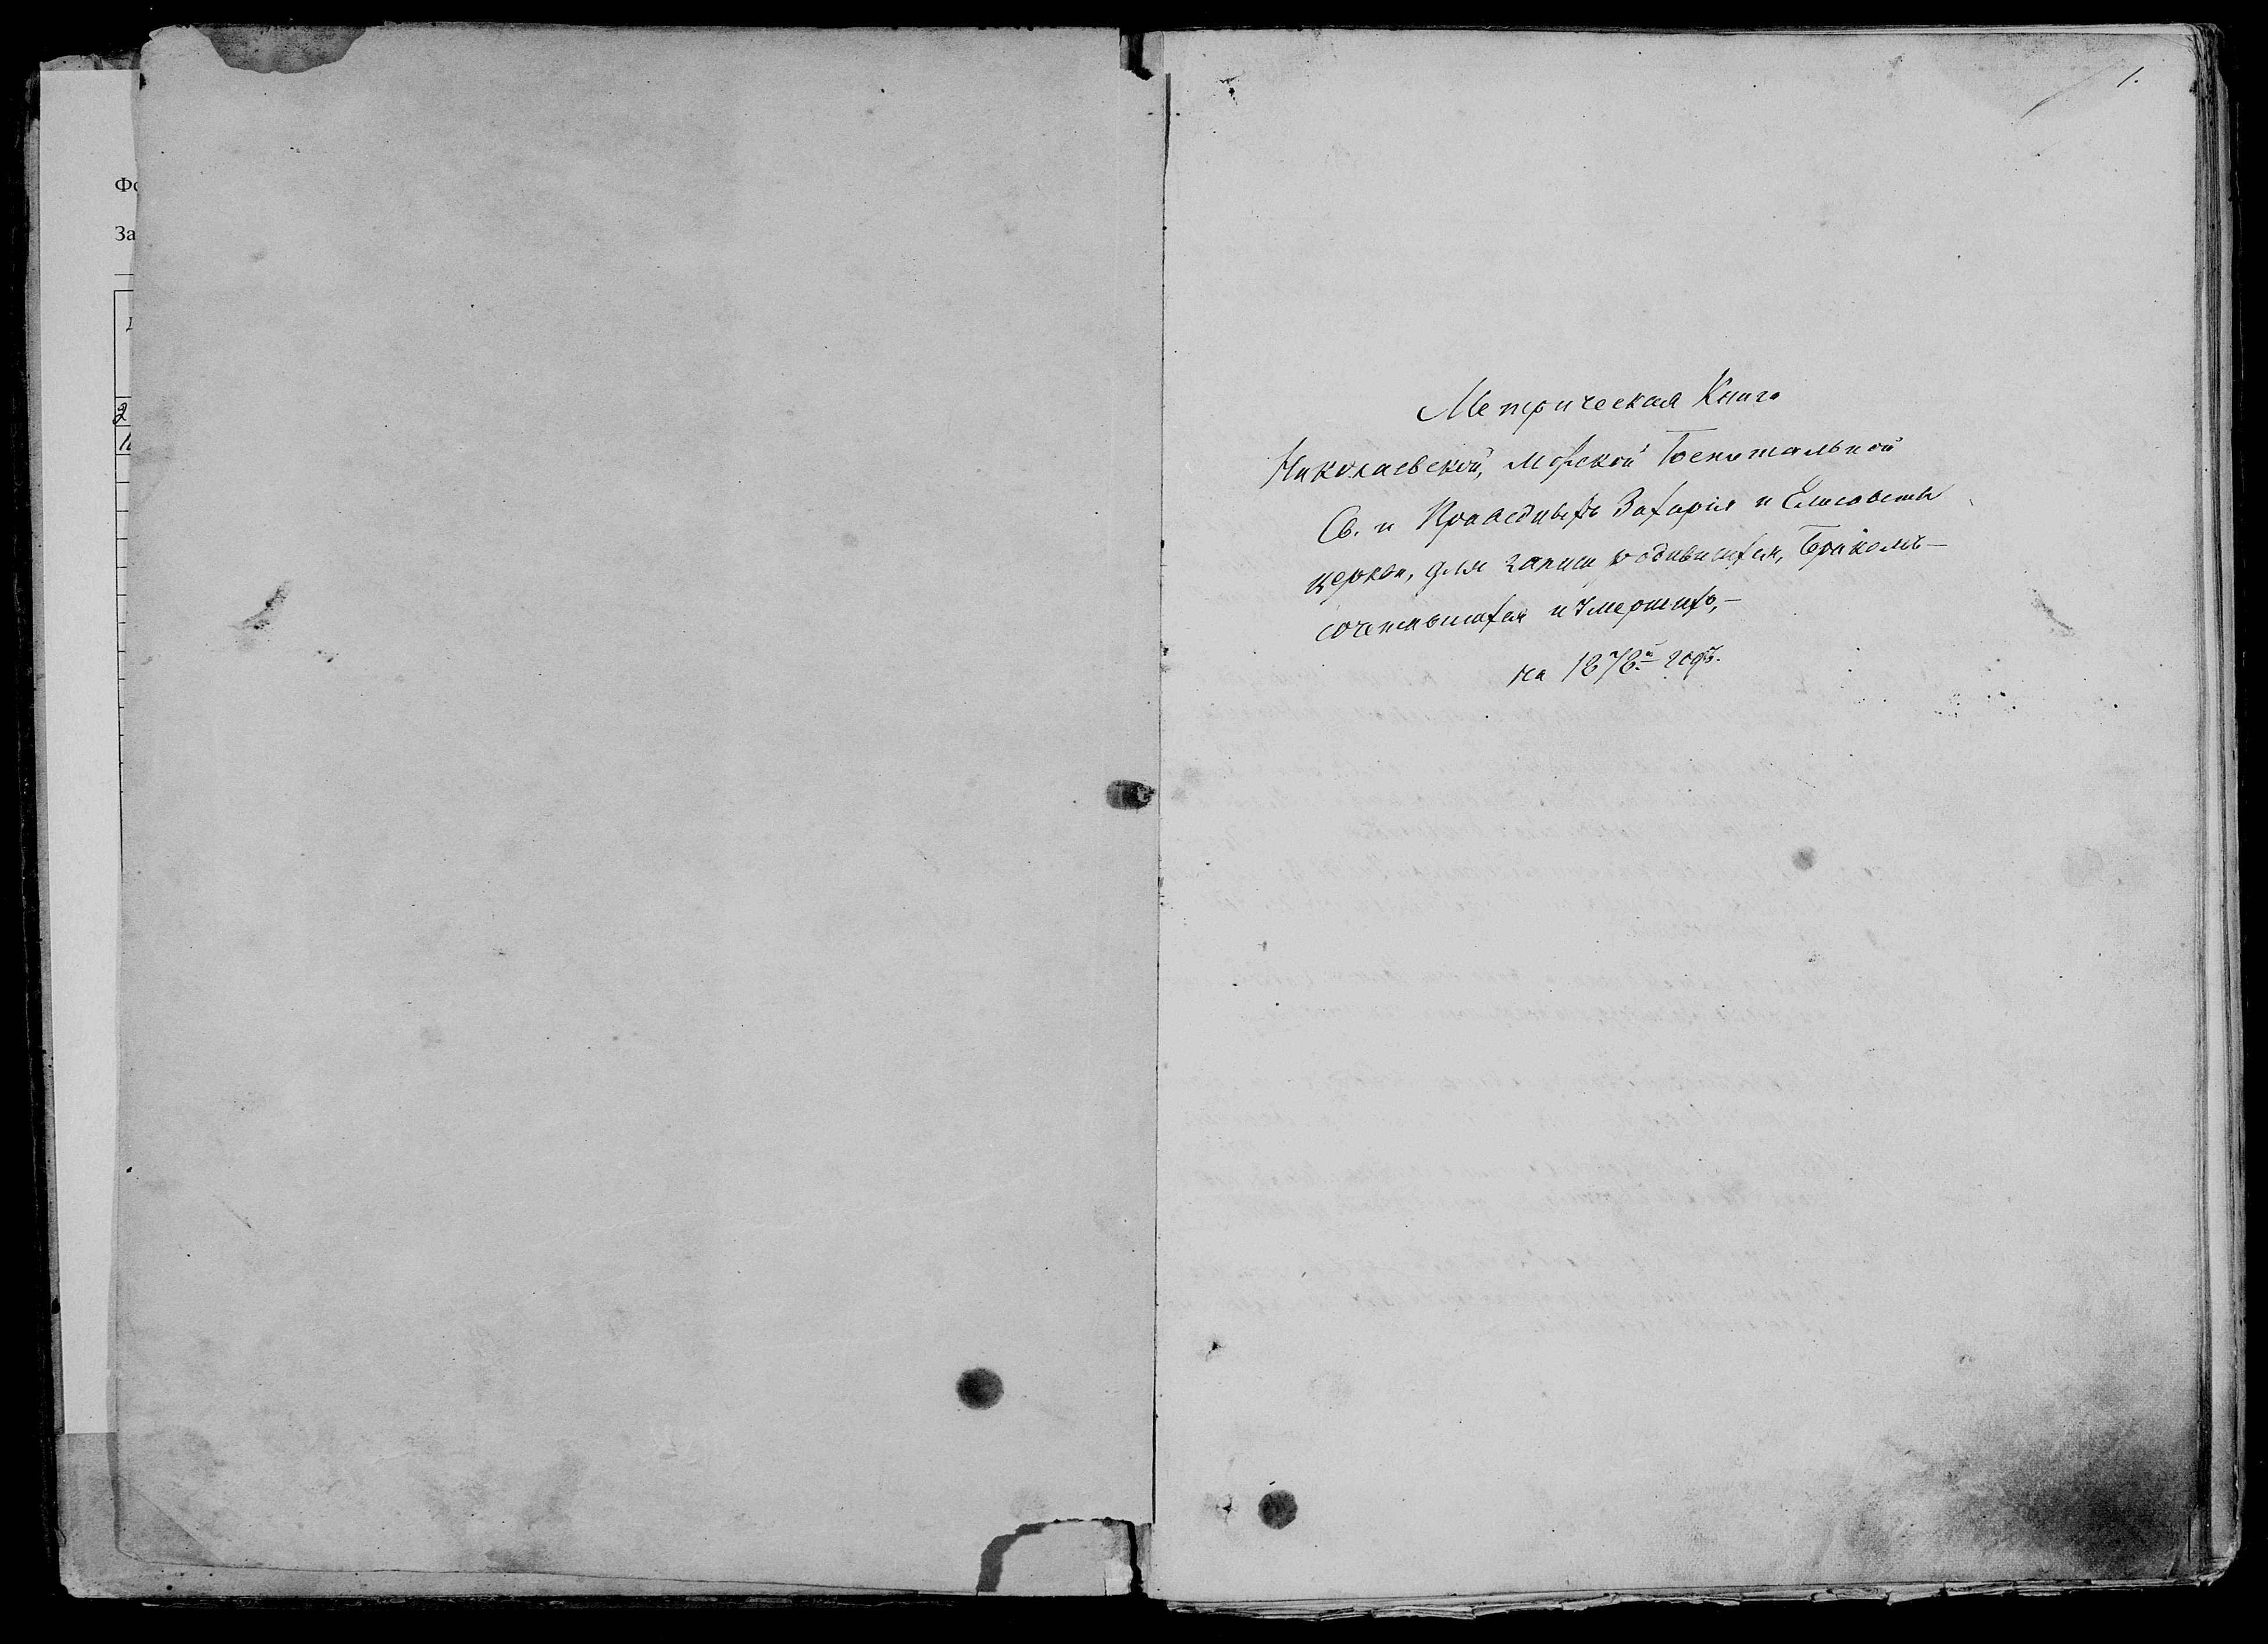 Фо
За
2
1.
Метрическая Книга
Николаевской, Морской Госпитальной
Св. и Праведныхъ Захарія и Елисаветы
церкви, для записи родившихся, бракомъ-
сочетавшихся и умершихъ,-
на 1878й годъ.